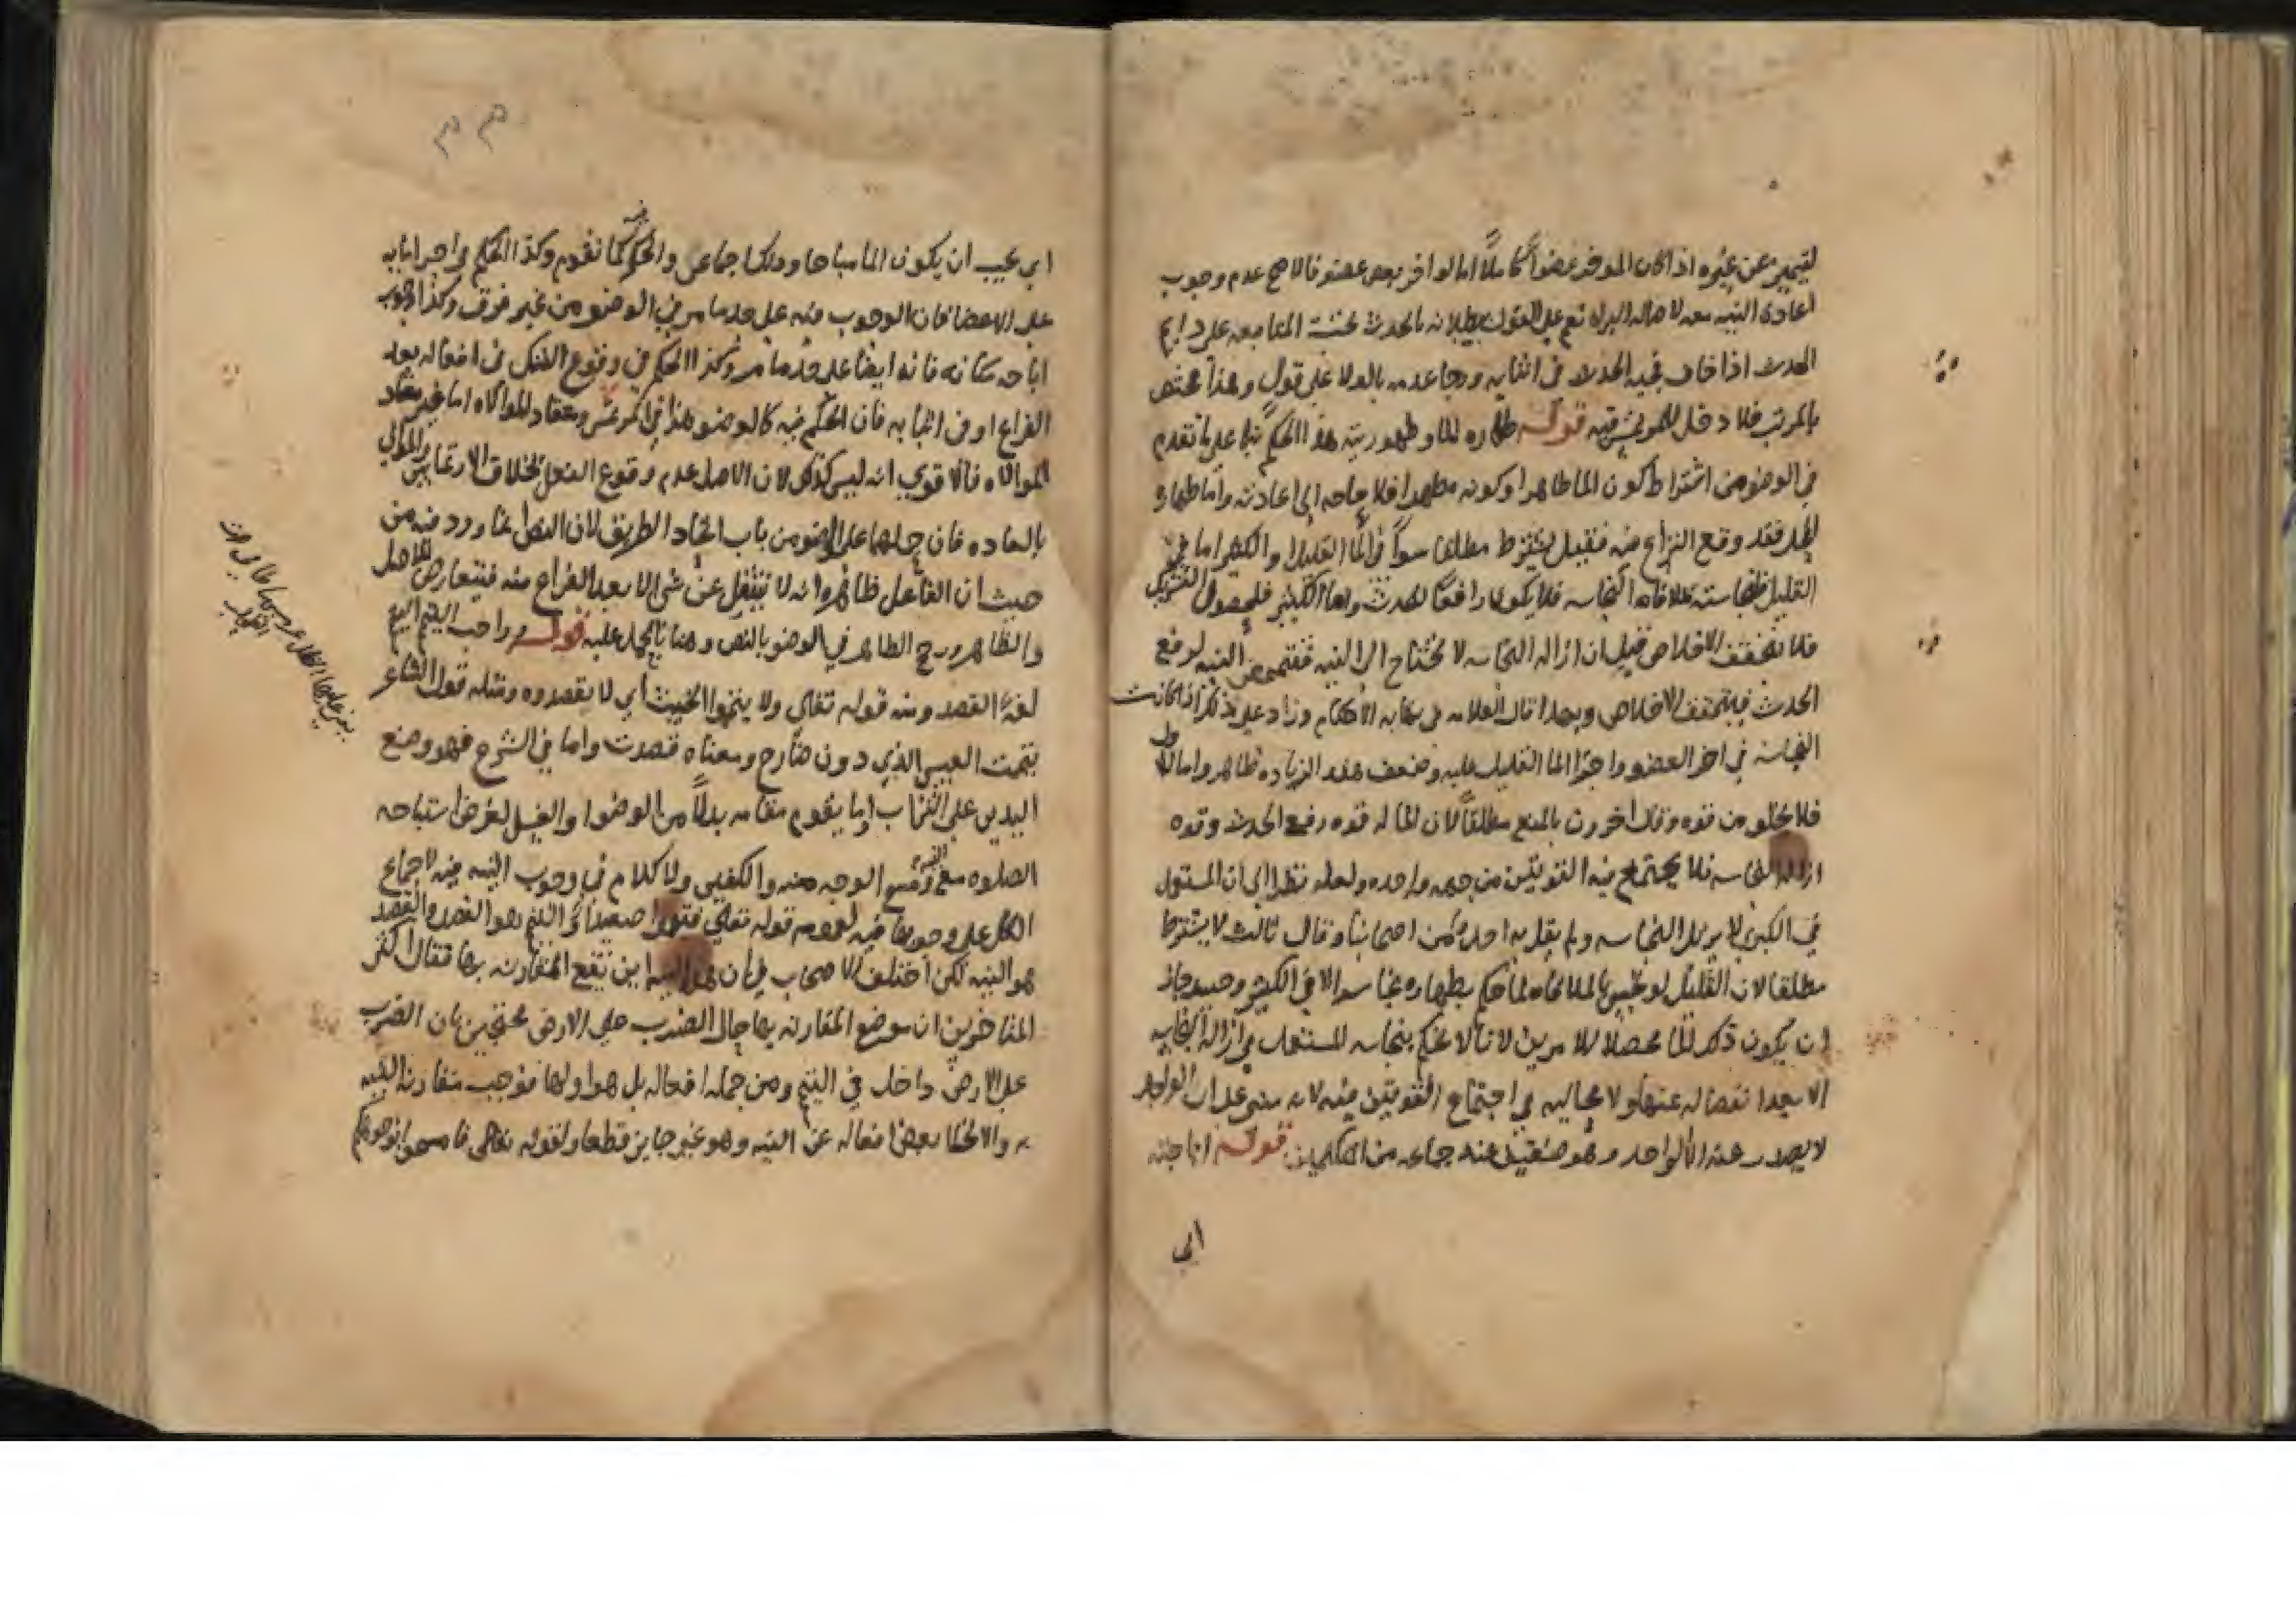 ليتميز عن غيره اذا كان الموخر عضوا كاملا اما لو اخر بعض عضو فالاصح عدم وجوب
اعادة النية معه لاصالة البراه نعم على القول ببطلانه بالحدث المتابعه على دايم
الحدث اذا خاف فجيه الحدث في اثنايه ورجا عدمه بالولا على قول وهذا مختص
بالمرتب فلا دخل للمرتمس فيه قوله طهاره الما وطهوريته هذا الحكم بنا على ما تقدم
في الوضو من اشتراط كون الما طاهرا وكونه مطهرا فلا حاجه الى اعادته واما طهارة
المحل فقد وقع النزاع فيه فقيل يشترط مطلقا سوآ في الما القليل والكثير اما في
القليل فلنجاسته بملاقاة النجاسه فلا يكون رافعا للحدث واما الكثير فلحصول التشريك
فلا يتحقق الاخلاص قيل ان ازاله النجاسه لا تحتاج الى النيه فتتمحض النيه لرفع
الحدث فيتحقق الاخلاص وبهذا قال العلامه في نهايه الاحكام وزاد على ذلك اذا كانت
النجاسه في اخر العضو واجرا الما القليل عليه وضعف هذه الزياده ظاهر واما الاول
فلا يخلو من قوه وقال اخرون بالمنع مطلقا لان الما له قوه رفع الحدث وقوه
ازاله النجاسه فلا يجتمع فيه القوتين من جهه واحده ولعله نظر الى ان المستعمل
في الكبرى لا يزيل النجاسه ولم يقل به احد من اصحابنا وقال ثالث لا يشترط
مطلقا لان القليل لو نجس بالملاقاه لما حكم بطهاره نجاسه الا في الكثير وحينيذ جاز
ان يكون ذلك الما محصلا للامرين لانا لا نحكم بنجاسه المستعمل في ازاله النجاسه
الا بعد انفصاله عنها ولا محاليه في اجتماع القوتين فيه لانه مبنى على ان الواحد
لا يصدر عنه الا الواحد وهو ضعيف عند جماعه من المتكلمين قوله اباحته
اي
اي يجب ان يكون الما مباحا وذلك اجماعي والحكم فيه كما تقدم وكذا الحكم في اجرايه
على الاعضا فان الوجوب فيه على حد ما مر في الوضو من غير فرق وكذا وجوب
اباحه مكانه فانه ايضا على حد ما مر وكذا الحكم في وقوع الشك في افعاله بعد
الفراغ او في اثنايه فان الحكم فيه كالوضو هذا في المرتمس ومعتاد الموالاه اما غير معتاد
الموالاه فالاقوى انه ليس كذلك لان الاصل عدم وقوع الفعل بخلاف الارتماس والموالي
بالعاده فان حملهما على الوضو من باب اتحاد الطريق لان النص انما ورد فيه من
حيث ان الفاعل ظاهره انه لا ينتقل عن شى الا بعد الفراغ منه فيتعارض الاصل
والظاهر ورجح الظاهر في الوضو بالنص وهنا بالحمل عليه قوله واجب التيمم التيمم
لغة القصد ومنه قوله تعالى ولا تيمموا الخبيث اي لا تقصدوه ومثله قول الشاعر
تيممت العيس الذي دون ضارج ومعناه قصدت واما في الشرع فهو وضع
اليدين على التراب او ما يقوم مقامه بدلا من الوضوا والغسل لغرض استباحه
الصلوه مع النيه ومسح الوجه منه والكفين ولا كلام في وجوب النيه فيه لاجماع
الكل على وجوبها فيه لعموم قوله تعالى فتيمموا صعيدا اذ التيمم هو القصد والقصد
هو النيه لكن اختلف الاصحاب في ان هذه النيه اين تقع المقارنه بها فقال اكثر
المتاخرين ان موضع المقارنه بها حال الضرب على الارض محتجين بان الضرب
على الارض داخل في التيمم ومن جمله افعاله بل هو اولها فوجب مقارنه النيه
به والا لخلا بعض افعاله عن النيه وهو غير جايز قطعا ولقوله تعالى فامسحوا بوجوهكم